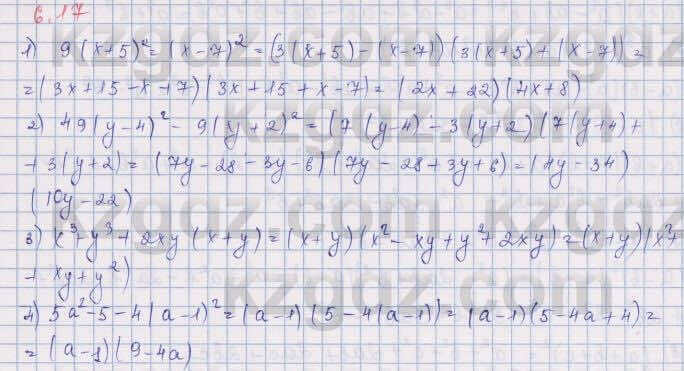 6.17
1) 9(x+5)² = (x-7)² = (3(x+5)-(x-7))(3(x+5)+(x-7)) =
= (3x+15-x+7)(3x+15+x-7) = (2x+22)(4x+8)
2) 49(y-4)² - 9(y+2)² = (7(y-4)-3(y+2)(7(y+4)+
+3(y+2) = (7y-28-3y-6)(7y-28+3y+6) = (4y-34)
(10y-22)
3) x³+y³+2xy(x+y) = (x+y)(x²-xy+y²+2xy) = (x+y)(x²+
+xy+y²)
4) 5a²-5-4(a-1)² = (a-1)(5-4(a-1)) = (a-1)(5-4a+4) =
= (a-1)(9-4a)
kzgdz.com